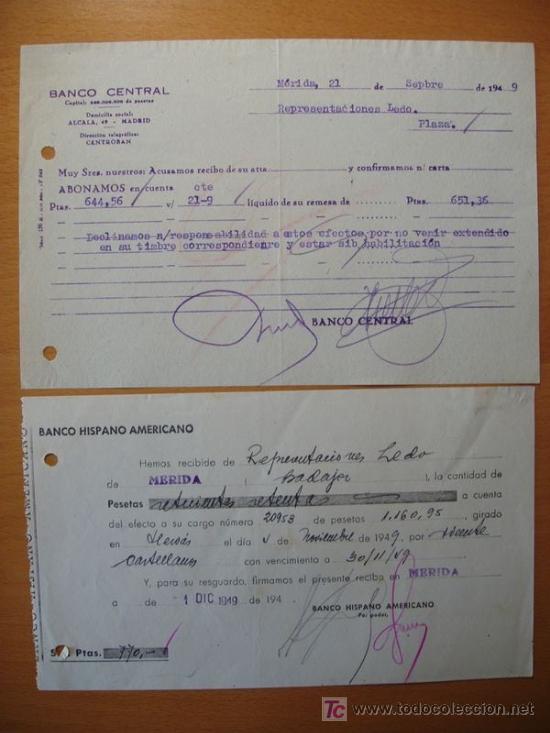 BANCO CENTRAL
Domicilio social:
ALCALA, 49 - MADRID
Dirección telegráfica:
CENTROBAN
Mérida, 21 de Sepbre de 1949
Representaciones Ledo.
Plaza.
Muy Sres. nuestros: Acusamos recibo de su atta. y confirmamos n/ carta
ABONAMOS en cuenta cte
Ptas. 644,56 v/ 21-9 líquido de su remesa de Ptas. 651,36
Declinamos n/responsabilidad a estos efectos por no venir extendido
en su timbre correspondienre y estar sib habilitación
BANCO CENTRAL
BANCO HISPANO AMERICANO
Hemos recibido de Representaciones Ledo
de MERIDA, Badajoz, la cantidad de
Pesetas setecientas setenta a cuenta
del efecto a su cargo número 20953 de pesetas 1.160,95, girado
en Hervás el día 4 de Noviembre de 1949, por Vicente
Castellano con vencimiento a 30/11/49
Y, para su resguardo, firmamos el presente recibo en MERIDA
a de -1 DIC 1949 de 194
BANCO HISPANO AMERICANO
Por poder,
Ptas. 770,-
TC www.todocoleccion.net